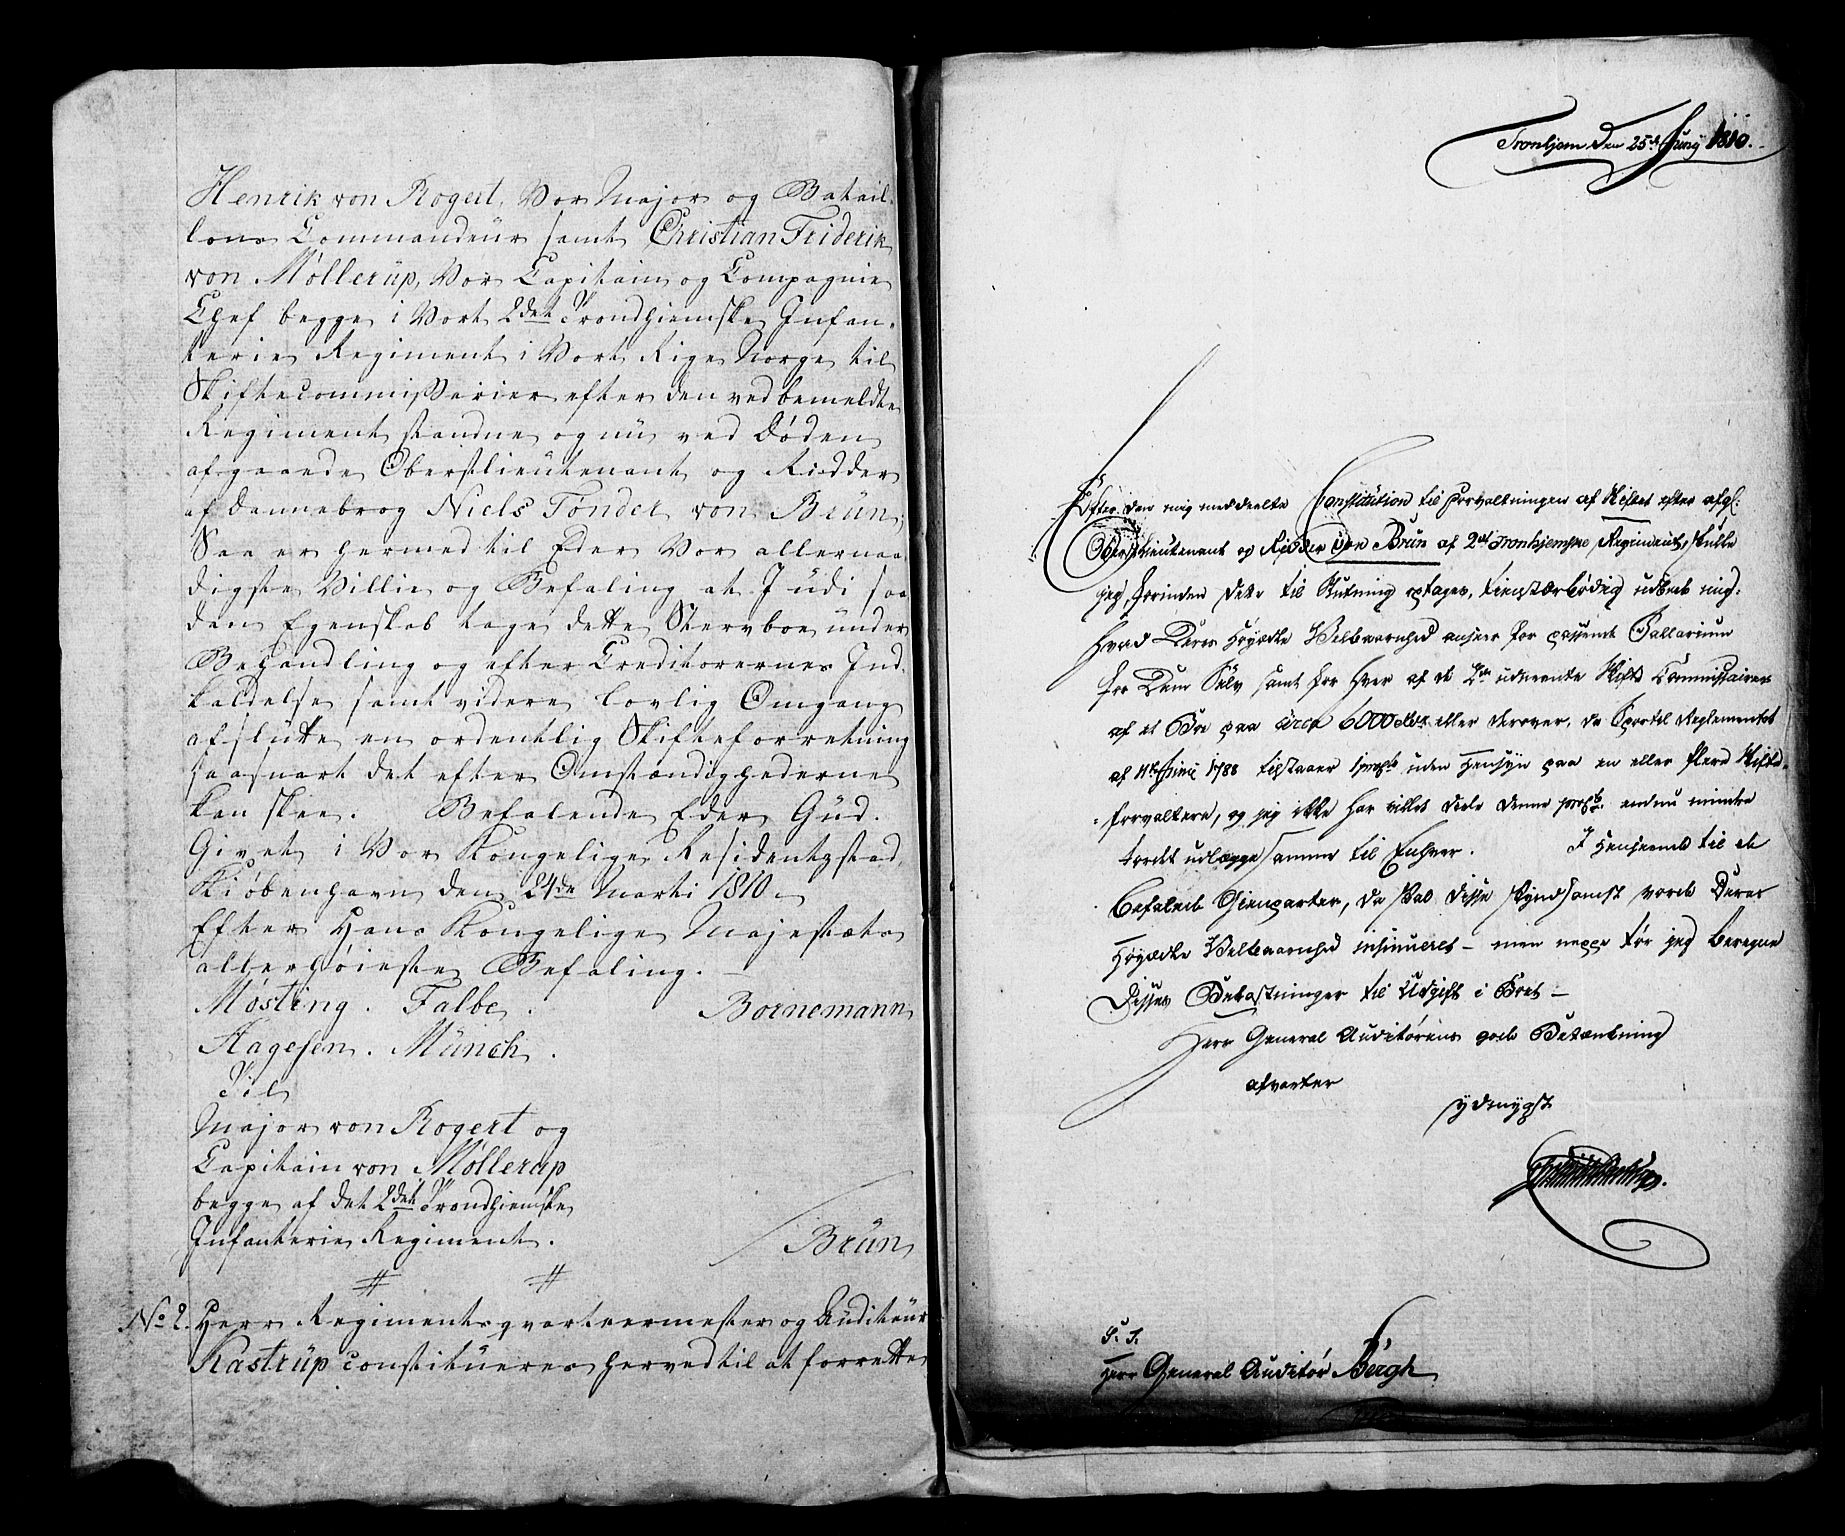 Henrik von Rogert, Vor Major og Batail-
lons Commandeur samt Christian Friderik
von Møllerup, Vor Capitain og Compagnie
Chef begge i Vort 2det Trondhiemske Infan-
terie Regiment i Vort Rige Norge til
Skiftecommissærier efter den ved bemeldte
Regiment standne og nu ved Døden
afgaaede Oberstlieutenant og Ridder
af Dannebrog Niels Tønder von Brün;
Saa er hermed til Eder Vor allernaa-
digste Villie og Befaling at I udi saa
dan Egenskab tage dette Stervboe under
Behandling og efter Creditorernes Ind-
kaldelse samt videre lovlig Omgang
afslutte en ordentlig Skifteforretning
saasnart det efter Omstændighederne
kan skee. Befalende Eder Gud.
Givet i Vor Kongelige Residentzstad
Kiøbenhavn den 24de Marti 1810
Efter Hans Kongelige Majestæts
allerhøieste Befaling.
Møsting. Falbe. Bornemann
Hagesen. Münch.
Til
Major von Rogert og
Capitain von Møllerup
begge af det 2det Trondhiemske
Infanterie Regiment.
Brün
No 2. Herr Regimentsqvarteermester og Auditeur
Kastrüp constitueres herved til at forrette
Tronhjem den 25de Juny 1810.
Efter den mig meddeelte Constitution til Forvaltningen af Skiftet efter afg:
Oberstlieutenant og Ridder von Brün af 2det Tronhjemske Regiment, skulle
jeg, forinden dette til Slutning optages, tienstærbødig udbede mig,
Hvad Deres Høyædle Velbaarenhed anseer for passende Sallarium
for Dem Selv samt for hver af de 2de udnævnte Skifte Commissairer
af et Boe paa circa 6000 rdlr eller derover, da Sportel Reglementet
af 11te Juni 1788 tilstaaer 1 procto uden Hensyn paa en eller flere Skifte-
forvaltere, og jeg ikke har villet deele denne procto. endnu mindre
tordet udlægge samme til Enhver. I Henseende til de
befalede Gienparter, da skal disse skyndsomst vorde Deres
Høyædle Velbaarenhed insinueret – men neppe tør jeg beregne
disses Bekostninger til Udgift i Boet –
Herr General Auditørens gode Betænkning
afvarter
ydmygst
S. T.
Herr General Auditør Bergh